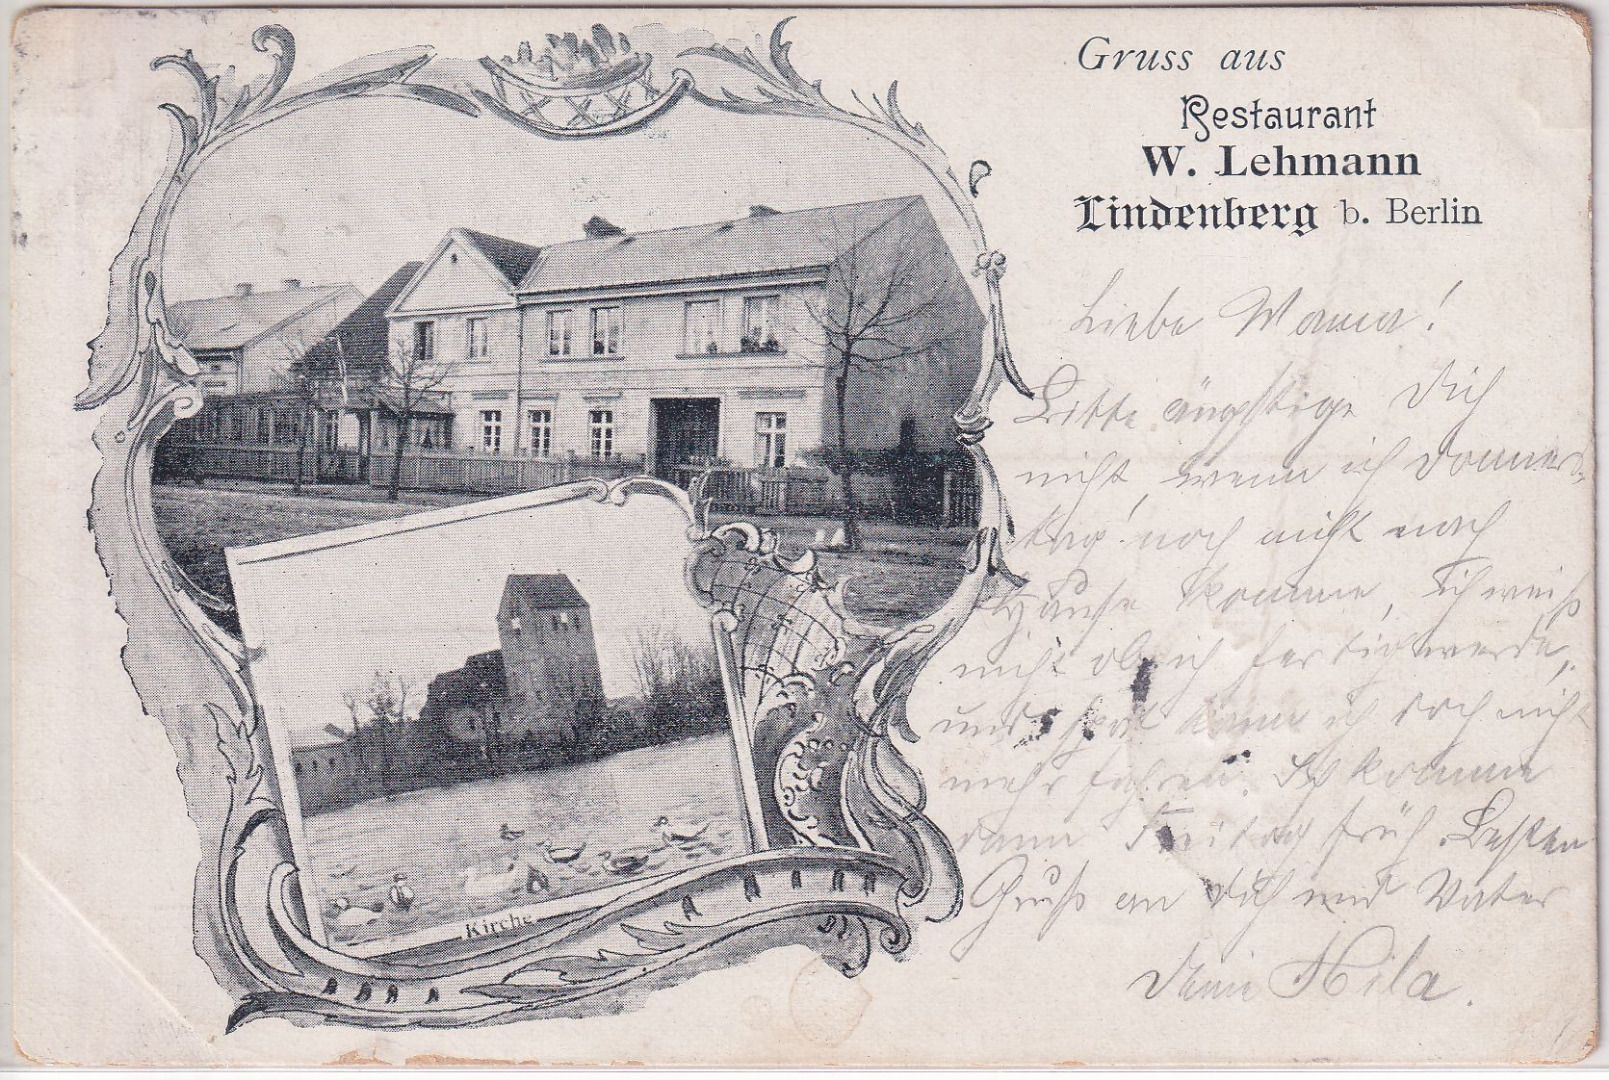 Gruss aus
Restaurant
W. Lehmann
Lindenberg b. Berlin
Liebe Mama!
Bitte ängstige Dich
nicht, wenn ich Donners-
tag noch nicht nach
Hause komme, ich weiß
nicht ob ich fertig werde,
und kann ich doch nicht
mehr fahren. Ich komme
dann Freitag früh. Besten
Gruß an Dich und Vater
Kirche